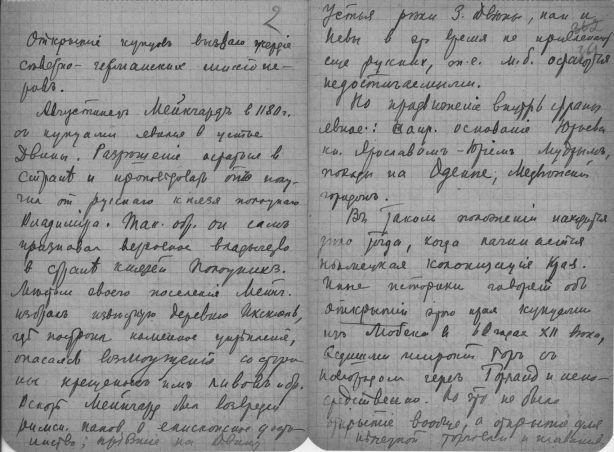 2
Открытие купцов вызвало рвение
северно-германских миссионе-
ров.
Августинец Мейнгардъ в 1180г.
с купцами явился в устье
Двины. Разрешение остаться в
странѣ и проповѣдовать он полу-
чил от русского князя полоцкого
Владимира. Так. обр. он самъ
признавал верховное владычество
в странѣ князей Полоцких.
Мѣстом своего поселения Мейнг.
избрал ливскую деревню Икскюль,
где построил каменное укрѣпление,
опасаясь возмущения со сторо-
ны крещеных им ливов и др.
Вскорѣ Мейнгард был возведен
римск. папой в епископское досто-
инство;
Устья реки З. Двины, как и
Невы в это время не привлекали
еще русских, т.-е. м.б. остаются
недосягаемыми.
Но продвижение внутрь страны
явное: напр. основание Юрьева
кн. Ярославом-Юрием Мудрым,
походы на Оденпе, Медвежий
городокъ.
Въ таком положении находится
дело тогда, когда начинается
нѣмецкая колонизация края.
Иные историки говорят об
открытии этого края купцами
из Любека в 60 годах XII вѣка,
ведшими торг с
Новгородом через Готланд и непо-
средственно. Но это не было
открытие вообще, а открытие для
нѣмецкой торговли и